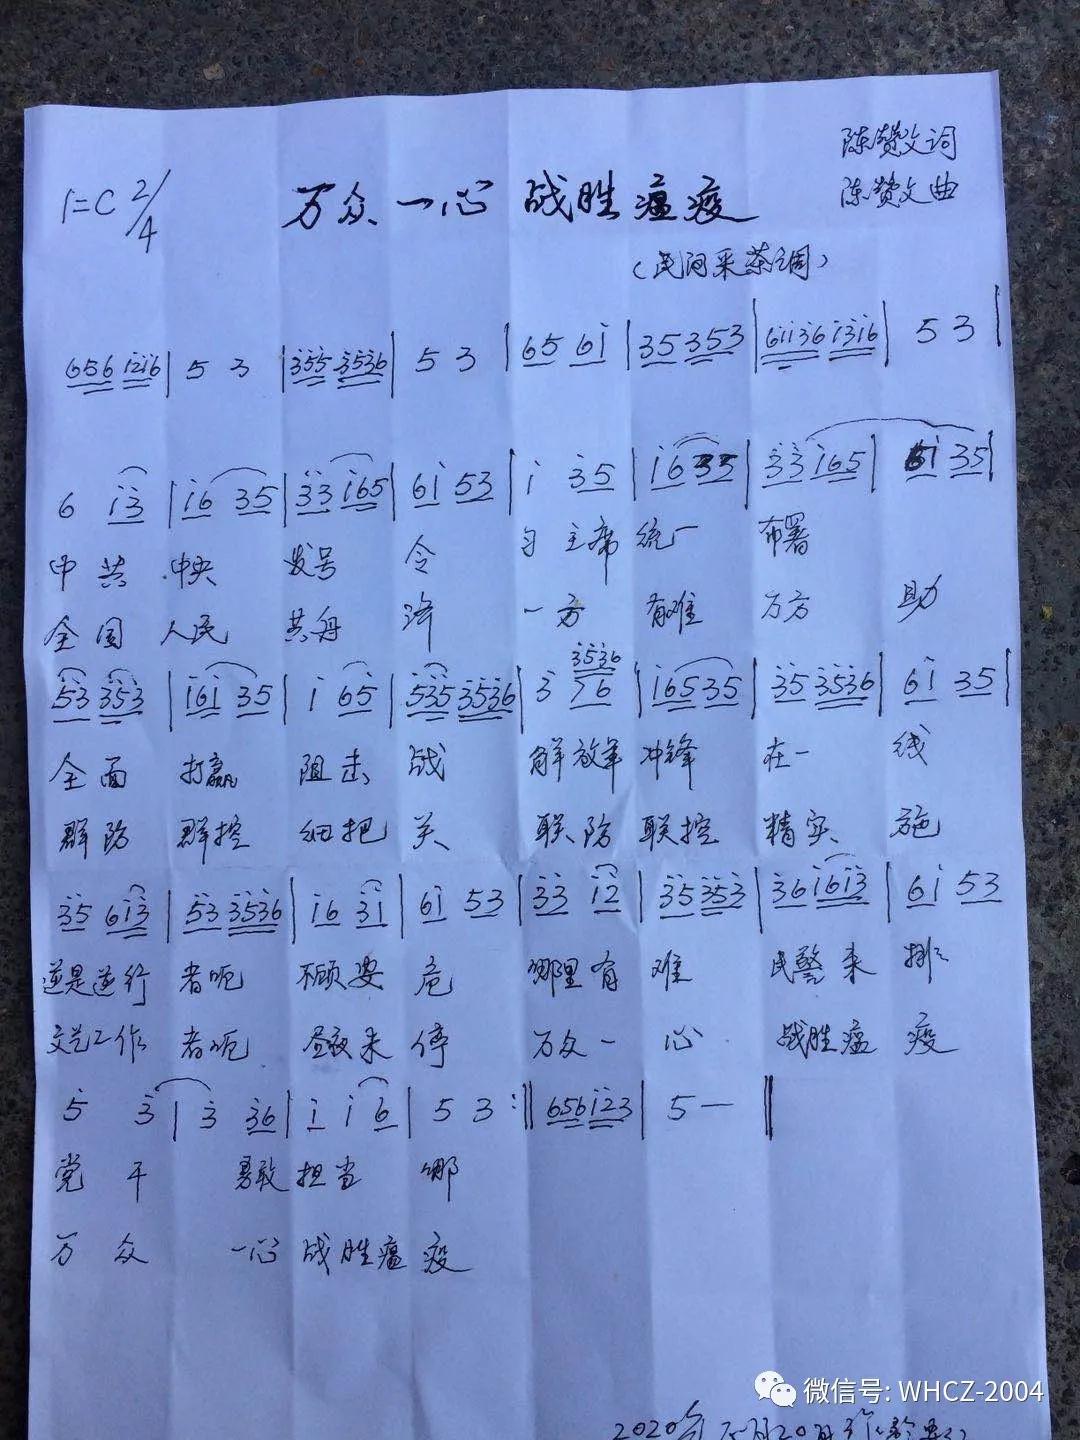 陈赞文词
1=C 2/4 万众一心 战胜瘟疫 陈赞文曲
(民间采茶调)
656 1216 | 5 3 | 355 3536 | 5 3 | 65 61 | 35 353 | 61136 1316 | 5 3 |
6 13 | 16 35 | 33 165 | 61 53 | 1 35 | 16 35 | 33 165 | 61 35 |
中共 中央 发号 令 习主席 统一 布署
全国 人民 共舟 济 一方 有难 万方 助
3536
53 353 | 161 35 | 1 65 | 535 3536 | 3 76 | 165 35 | 35 3536 | 61 35 |
全面 打赢 阻击 战 解放军 冲锋 在一 线
群防 群控 细把 关 联防 联控 精实 施
35 613 | 53 3536 | 16 31 | 61 53 | 33 12 | 35 353 | 36 1613 | 61 53
逆行 者呃 不顾安 危 哪里有 难 民警来 排
文艺工作 者呃 昼夜未 停 万众一 心 战胜瘟 疫
5 3 | 3 36 | 1 1 6 | 5 3 :‖ 656 123 | 5 — ‖
党干 勇敢 担当 哪
万众 一心 战胜瘟 疫
2020年 月20日
微信号: WHCZ-2004